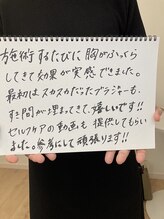 施術するたびに胸がふっくら
してきて効果が実感できました。
最初はスカスカだったブラジャーも、
すき間が埋まってきて嬉しいです!!
セルフケアの動画も提供してもらい
ました。参考にして頑張ります!!